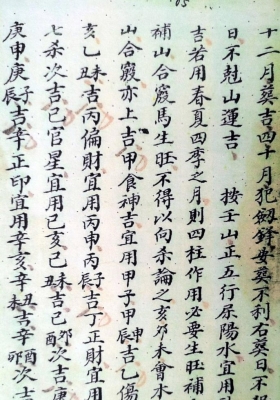 十二月葬吉四十月犯劍鋒安葬不利右葬日不犯
日不尅山運吉　按壬山正五行原陽水宜用
吉若用春夏四季之月則四柱作用必要生旺補
補山合廢馬生旺不得以向杀論之亥卯未會水
山合竅亦上吉甲食神吉宜用甲子甲申辰吉乙傷
亥乙未丑吉丙偏財宜用丙申丙子辰吉丁正財宜用
七杀次吉己官星宜用己亥己未丑吉己酉卯次吉庚
庚申庚子辰吉辛正印宜用辛亥辛丑未吉辛酉卯次吉